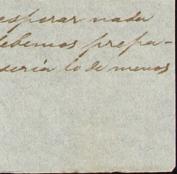 esperar nada
debemos prepa-
sería lo de menos